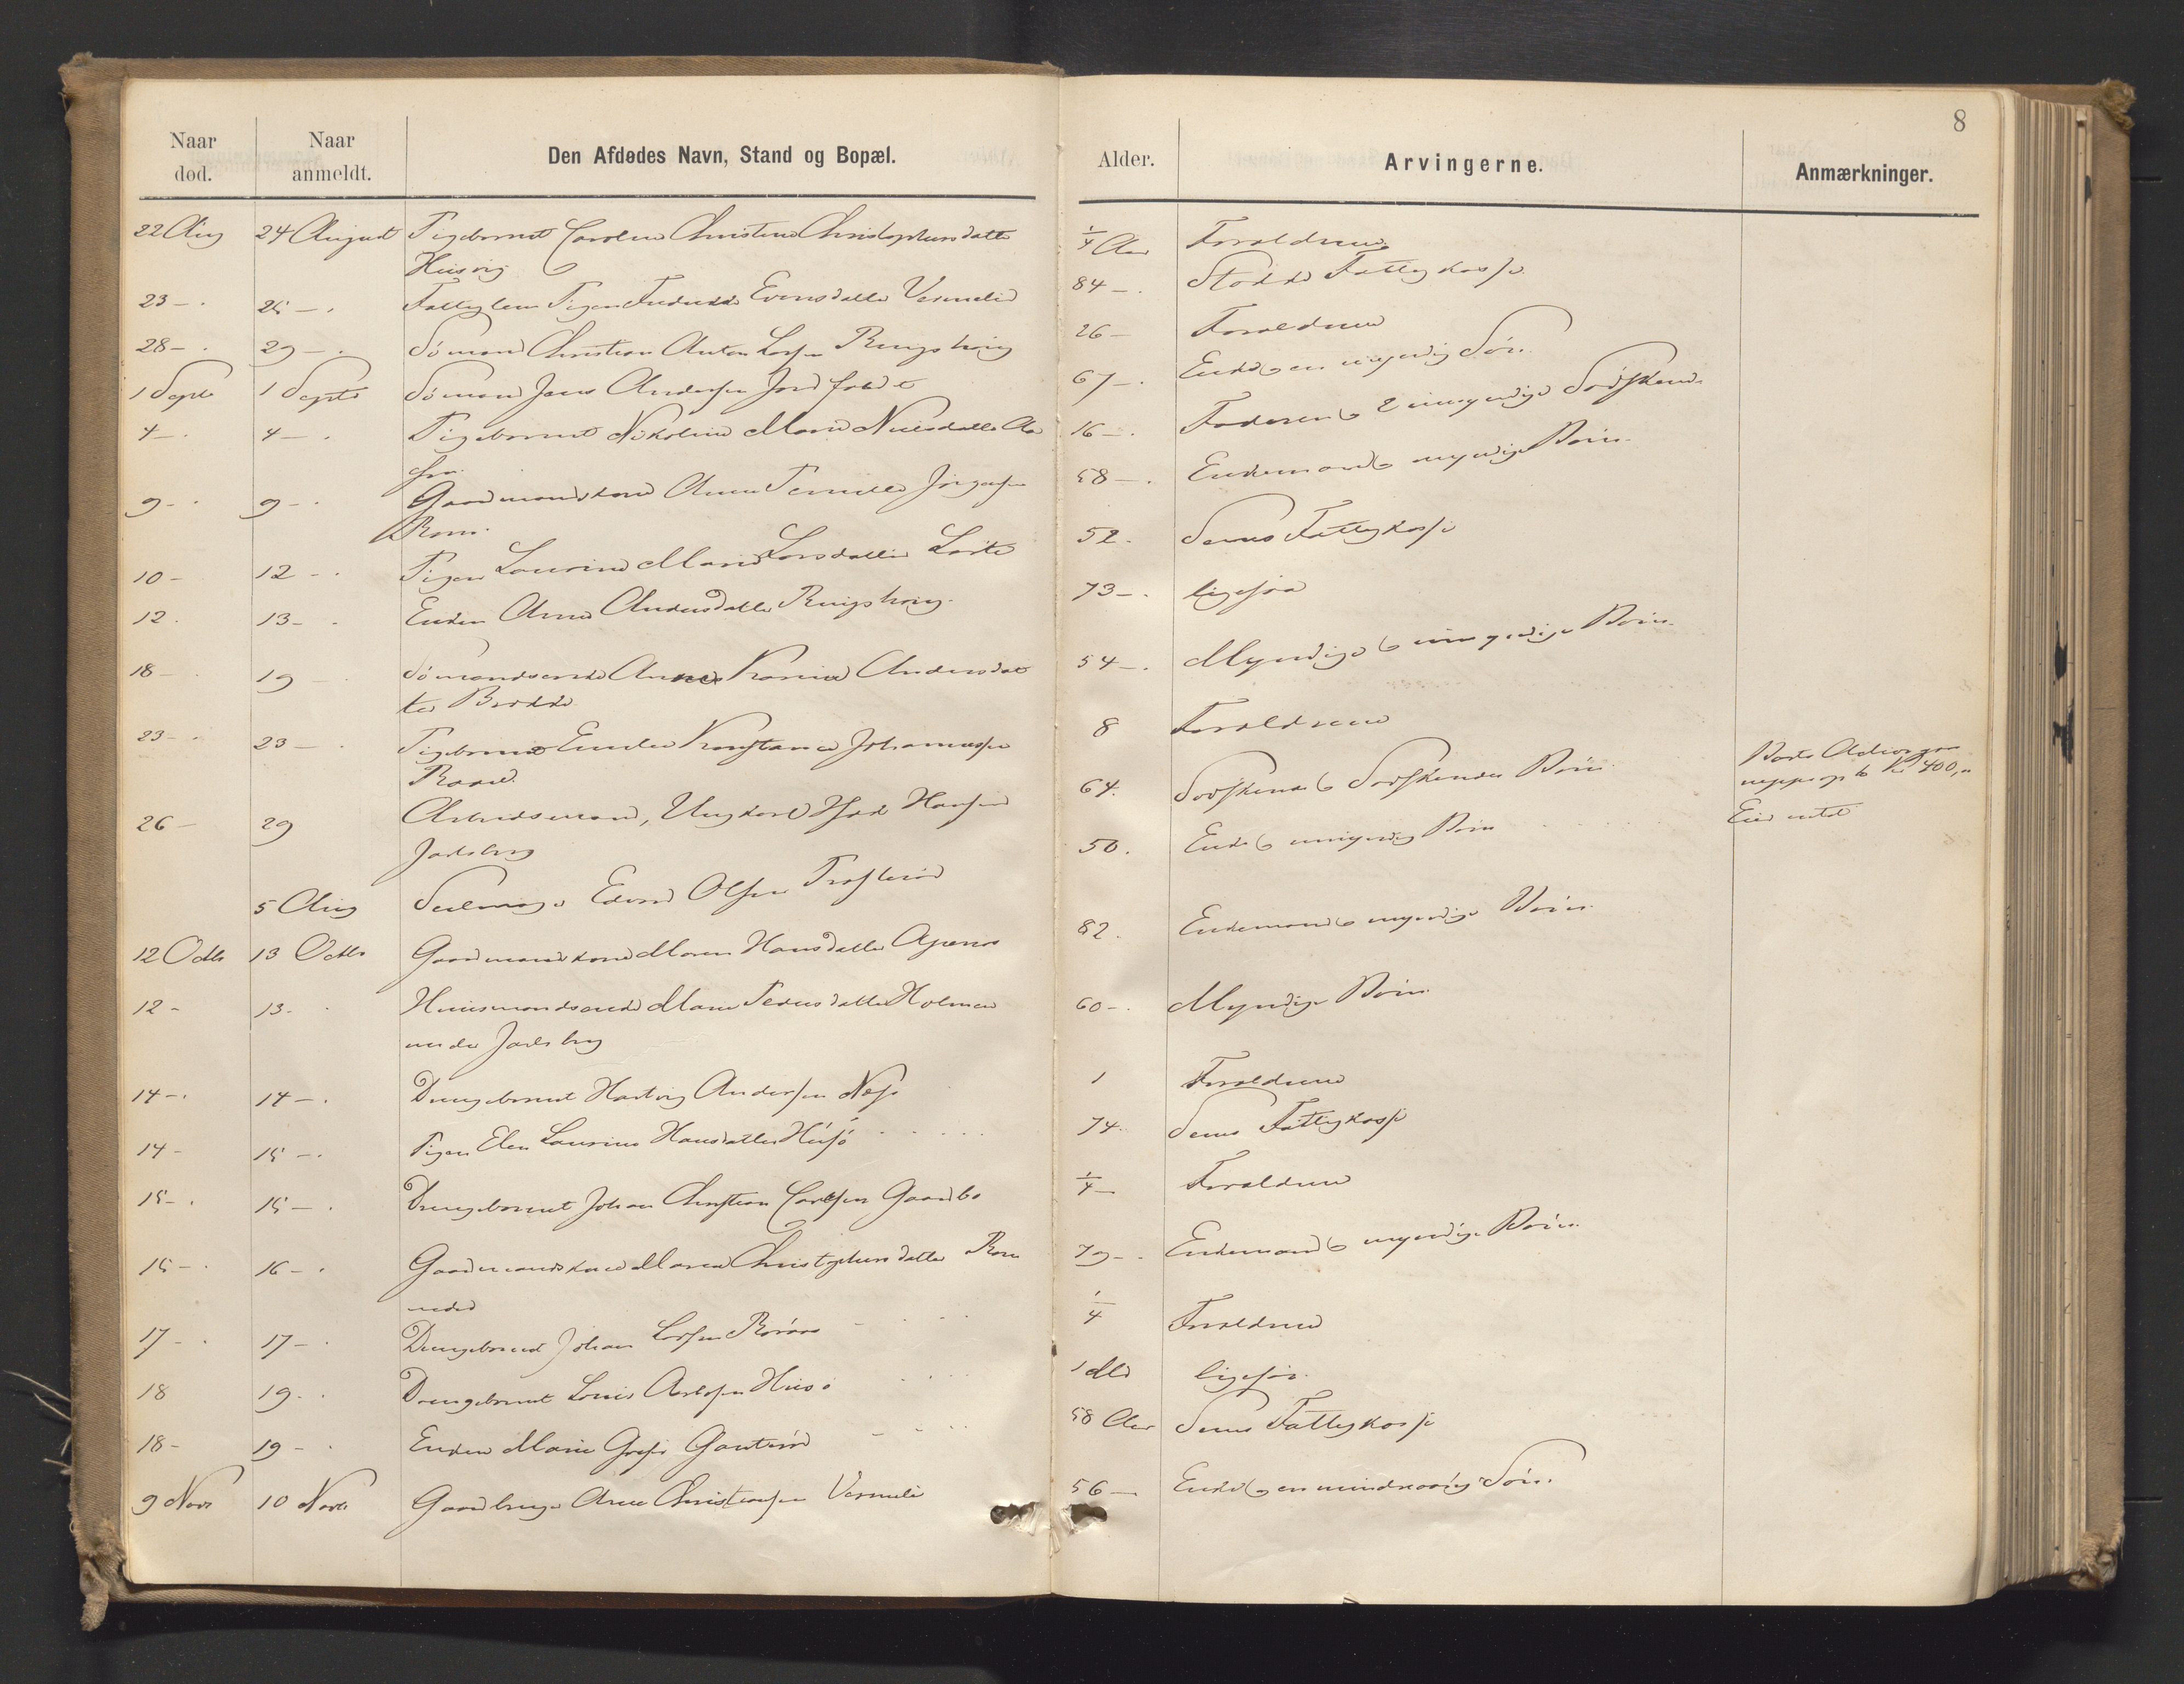 8
Naar død.
Naar anmeldt.
Den Afdødes Navn, Stand og Bopæl.
Alder.
Arvingerne.
Anmærkninger.
22 Aug 24 August Pigebarnet Caroline Christine Christophersdatter ¼ Aar Forældrene
Husvig
23 - 25 - Fattiglem Pigen Evensdatter Vermelid 84 - Stokke Fattigkasse
28 - 29 - Sømand Christian Anton Larsen Ringshoug 26 - Forældrene
1 Septr 1 Septr Sømand Jens Andersen 67 - Enke & en myndig Søn
4 - 4 - Pigebarnet Nikoline Marie Nilsdatter 16 - Faderen & 2 umyndige Sødskende
9 - 9 - Gaardmandskone Anne Pernille Jørgensen 58 - Enkemand & myndige Børn
Rom
10 - 12 - Pigen Laurine Marie Larsdatter 52 - Sems Fattigkasse
12 13 - Enken Anne Andersdatter Ringshoug 73 - ligesaa
18 - 19 - Sømandsenke Anne Karine Andersdat 54 - Myndige & umyndige Børn
ter Brekke
23 - 23 - Pigebarnet Emilie Konstance Johannessen 8 Forældrene
26 - 29 Arbeidsmand, Ungkarl Hansen 64 Sødskende & Sødskendes Børn Boets Activa gaar neppe op til Kr 400,-
Jarlsberg
5 Aug Edvard Olsen 50 Enke & umyndige Børn Eier intet
12 Octbr 13 Octbr Gaardmandskone Maren Hansdatter 82 Enkemand & myndige Børn
12 - 13 - Husmandsenke Maren Pedersdatter Holmen 60 - Myndige Børn
under Jarlsberg
14 - 14 - Drengebarnet Hartvig Andersen Næs 1 Forældrene
14 - 15 - Pigen Elen Laurine Hansdatter Husø 74 Sems Fattigkasse
15 - 15 - Drengebarnet Johan Christian Carlsen Gaarbo ¼ - Forældrene
15 - 16 - Gaardmandskone Maren Christophersdatter 79 - Enkemand & myndige Børn
17 - 17 - Drengebarnet Johan Larsen Røraas ¼ Forældrene
18 19 - Drengebarnet Louis Husø 1 Md ligesaa
18 - 19 - Enken Marie Gauterød 58 Aar Sems Fattigkasse
9 Novr 10 Novbr Gaardbruger Arne Christensen Vermeli 56 - Enke & en mindreaarig Søn